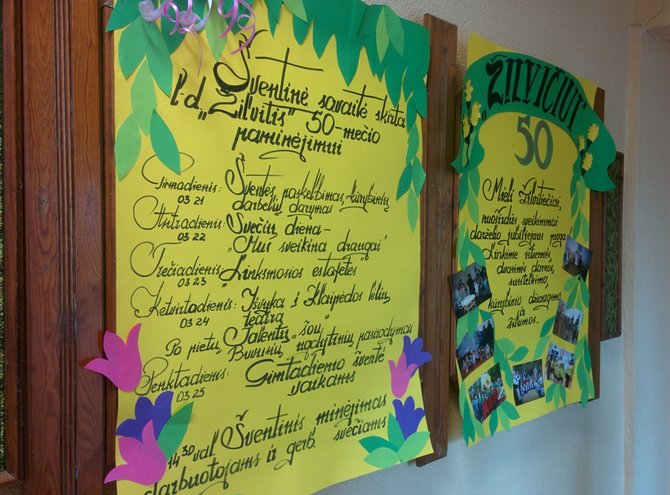 Šventinė savaitė skirta
l.d. „Žilvitis" 50-mečio
paminėjimui
Pirmadienis: Šventės paskelbimas, kūrybinių
03 21 darbelių darymas
Antradienis: Svečių diena-
03 22 „Mus sveikina draugai"
Trečiadienis: „Linksmosios estafetės"
03 23
Ketvirtadienis: Išvyka į Klaipėdos lėlių
03 24 teatrą
Po pietų „Talentų šou"
Buvusių ugdytinių pasirodymai
Penktadienis: Gimtadienio šventė
03 25 vaikams
14 30 val. Šventinis minėjimas
darbuotojams ir gerb. svečiams
ŽILVIČIUI
50
Mieli Žilvitiečiai,
nuoširdūs sveikinimai
darželio jubiliejaus proga
Linkime išmonės,
dvasinės darnos,
susitelkimo,
kūrybinio džiaugsmo
ir šilumos.